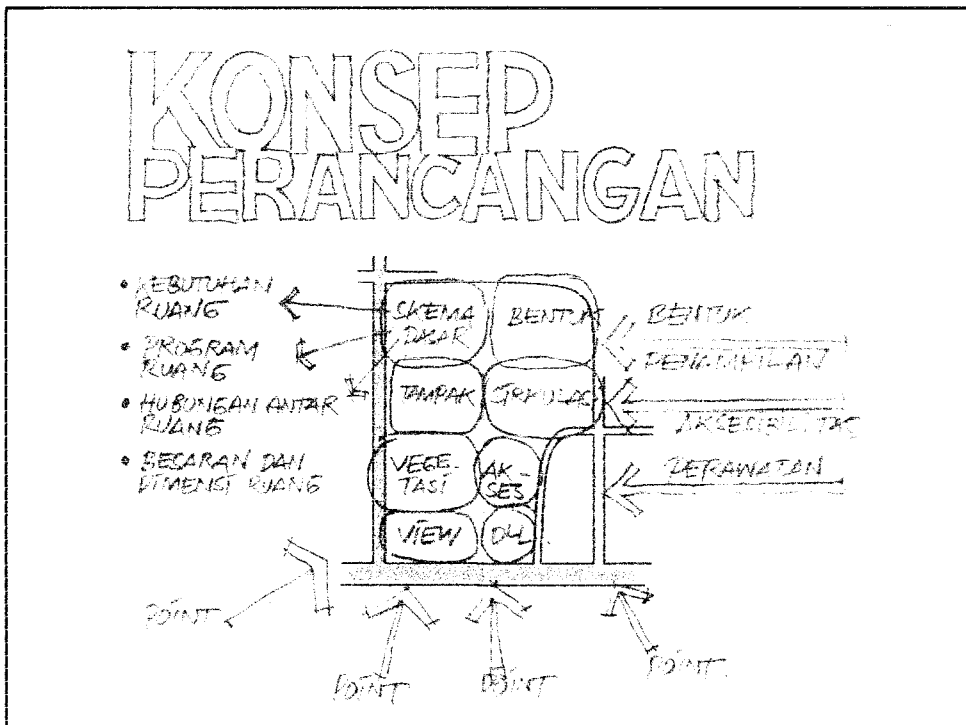 KONSEP
PERANCANGAN
• KEBUTUHAN
RUANG
• PROGRAM
RUANG
• HUBUNGAN ANTAR
RUANG
• BESARAN DAN
DIMENSI RUANG
SKEMA
DASAR
BENTUK
TAMPAK
SIRKULASI
VEGE-
TASI
AK-
SES
VIEW
DLL.
BENTUK
PENAMPILAN
AKSESIBILITAS
PERAWATAN
POINT
POINT
POINT
POINT